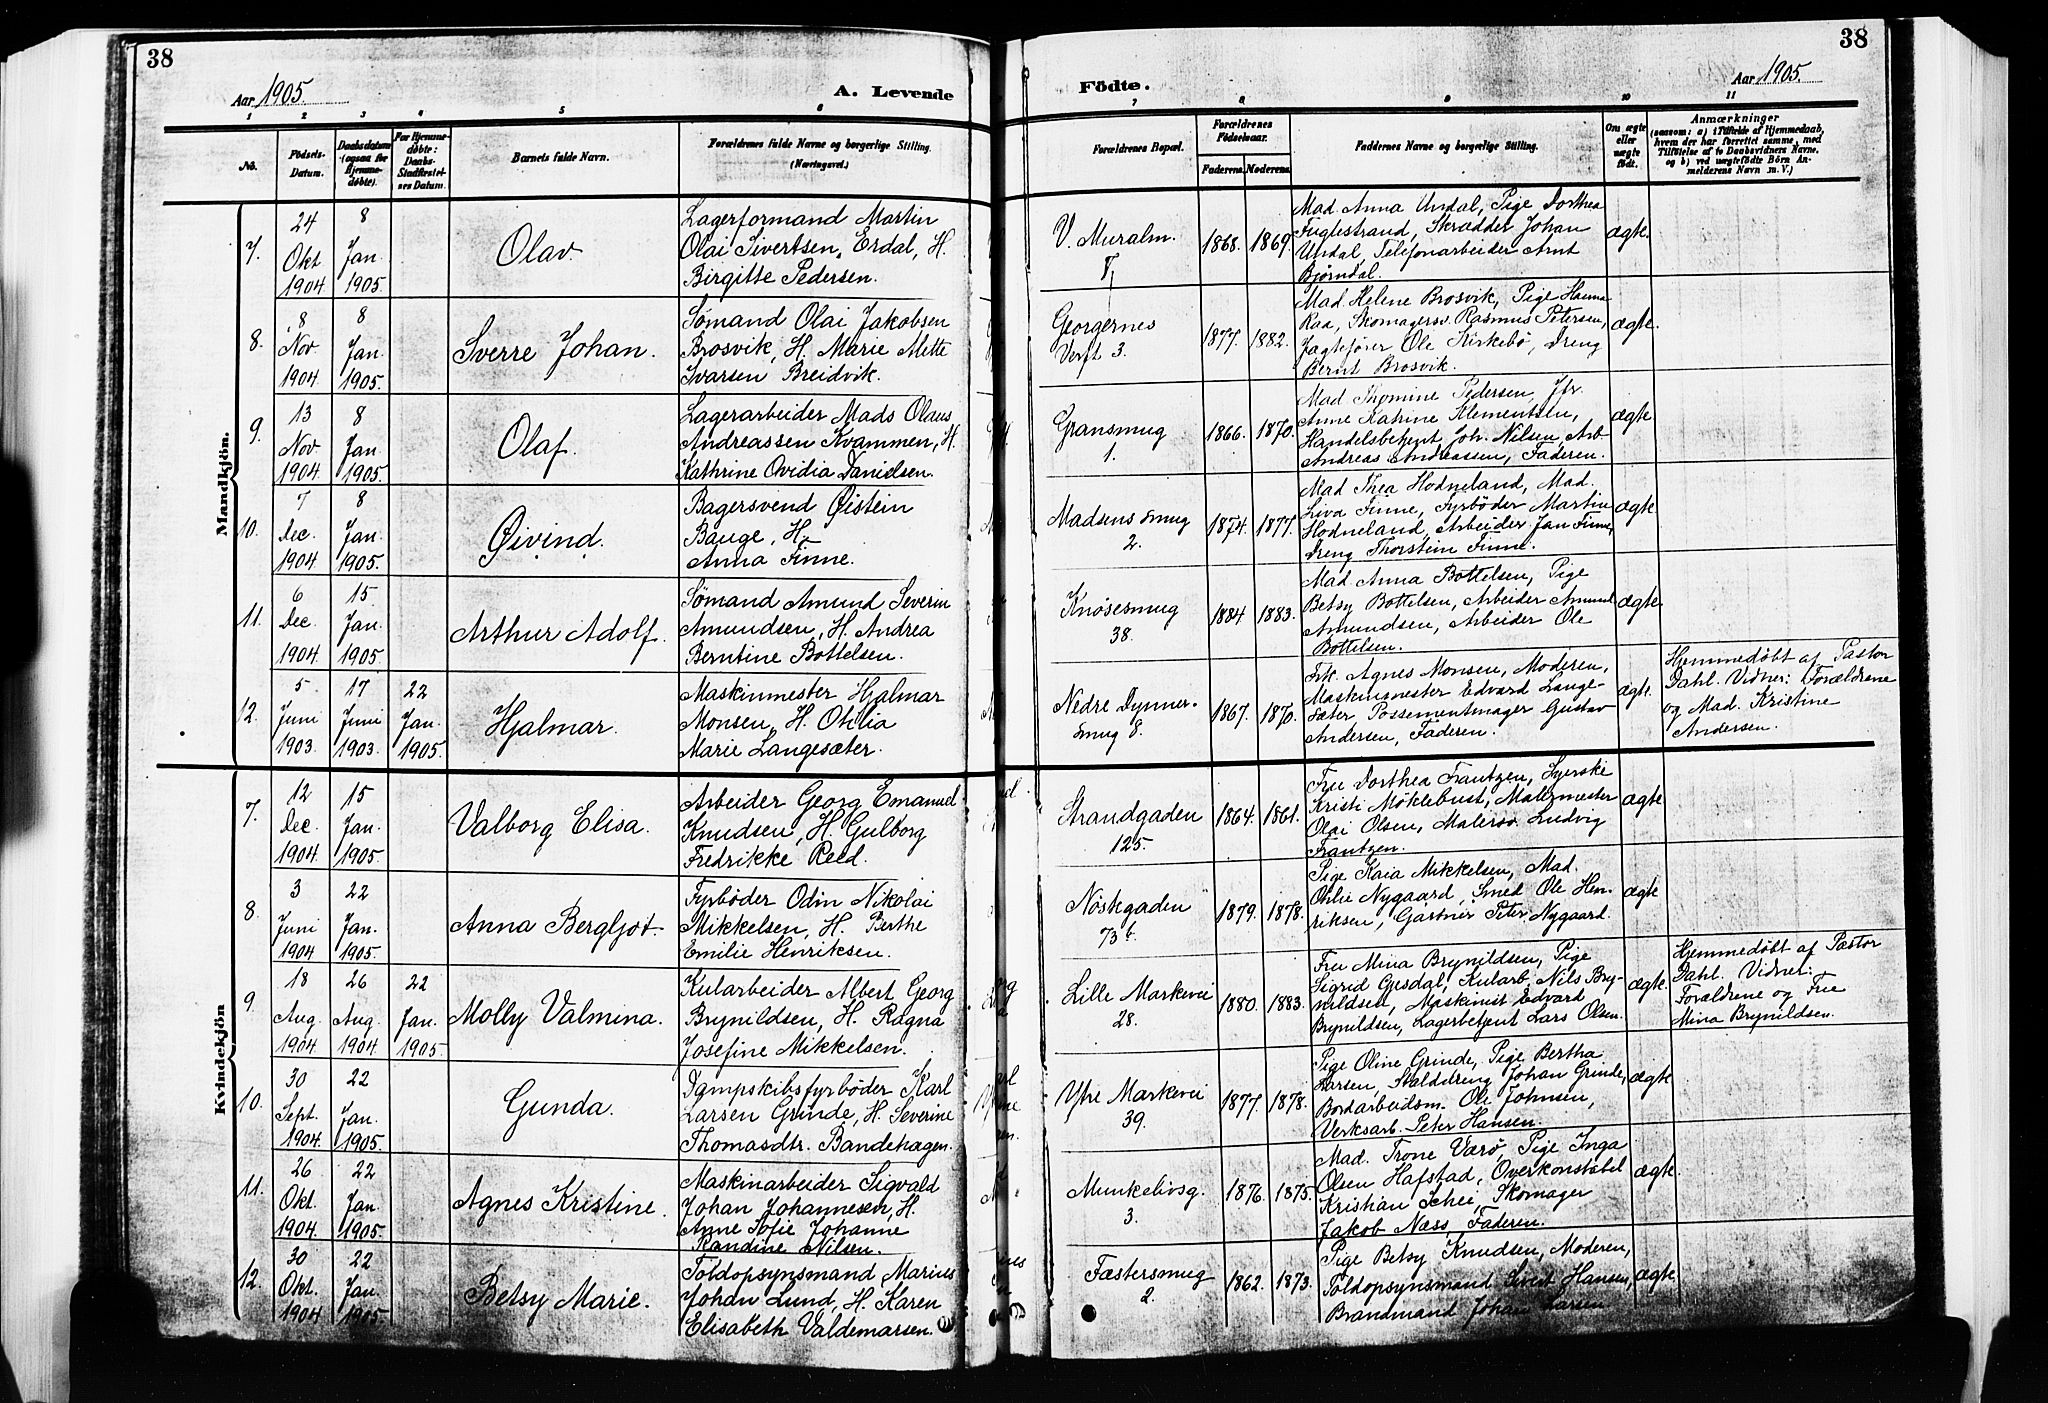 38
38
Aar 1905.
A. Levende
Fôdte.
Aar 1905.
1 2 3 4 5 6 7 8 9 10 11
No.
Födsels-
Datum.
Daabsdatum
(ogsaa for
Hjemme-
døbte).
For Hjemme-
døbte:
Daabs-
Stadfæstel-
ses Datum.
Barnets fulde Navn.
Forældrenes fulde Navne og borgerlige Stilling.
(Næringsvei.)
Forældrenes Bopæl.
Forældrenes
Födselsaar.
Faderens.
Moderens.
Faddernes Navne og borgerlige Stilling.
Om ægte
eller
uægte
födt.
Anmærkninger
(saasom: a) i Tilfælde af Hjemmedaab,
hvem der har forrettet samme, med
Tilföielse af to Daabsvidners Navne.
og b) ved uægtefödte Börn An-
melderens Navn m. V.)
Mandkjön.
7.
24
Okt
1904
8
Jan.
1905.
Olav
Lagerformand Martin
Olai Sivertsen, Erdal, H.
Birgitte Pedersen.
V. Muralm.
1868.
1869.
Mad. Anna Undal, Pige Dorthea
Fuglestrand, Skrædder Johan
Undal, Telefonarbeider Arnt
Bjørndal.
ægte.
8.
8
Nov
1904
8
Jan.
1905.
Sverre Johan.
Sømand Olai Jakobsen
Brosvik, H. Marie Mette
Ivarsen Breidvik.
Georgernes
Verft 3.
1877.
1882.
Mad. Helene Brosvik, Pige Hanna
Raa, Skomagersv. Rasmus Petersen,
Jagtefører Ole Kirkebø, Dreng
Bernt Brosvik.
ægte.
9.
13
Nov
1904
8
Jan.
1905.
Olaf.
Lagerarbeider Mads Olaus
Andreassen Kvammen, H.
Kathrine Ovidia Danielsen.
Gransmug
1.
1866.
1870.
Mad. Thomine Pedersen, Jfr.
Anne Katrine Klementsen,
Handelsbetjent Joh. Nilsen, Arb
Andreas Andreassen, Faderen.
ægte.
10.
7
Dec.
1904
8
Jan.
1905.
Øivind.
Bagersvend Øistein
Bauge, H.
Anna Finne.
Madsens smug
2.
1874.
1877.
Mad Thea Hodneland, Mad.
Liva Finne, Fyrbøder Martin
Hodneland, Arbeider Jan Finne,
Dreng Thorstein Finne.
ægte
11.
6
Dec.
1904.
15.
Jan.
1905.
Arthur Adolf.
Sømand Amund Severin
Amundsen, H. Andrea
Berntine Bottelsen.
Knøsesmug
38.
1884
1883.
Mad. Anna Bottelsen, Pige
Betsy Bottelsen, Arbeider Amund
Amundsen, Arbeider Ole
Bottelsen.
ægte
12.
5
Juni
1903.
17
Juni
1903.
22
Jan.
1905.
Hjalmar.
Maskinmester Hjalmar
Monsen, H. Othlia
Marie Langesæter.
Nedre Dynner-
smug 8.
1867.
1870.
Frk. Agnes Monsen, Moderen,
Maskinmester Edvard Lange-
sæter, Possementmager Gustav
Andersen, Faderen.
ægte.
Hjemmedøbt af Pastor
Dahl. Vidner: Forældrene
og Mad. Kristine
Andersen.
Kvindekjön
7.
12
Dec.
1904.
15
Jan.
1905.
Valborg Elisa.
Arbeider Georg Emanuel
Knudsen, H. Gulborg
Fredrikke Reed.
Strandgaden
125.
1864.
1861.
Fru Dorthea Frantzen, Syerske
Kristi Møklebust, Malermester
Olai Olsen, Malersv. Ludvig
Frantzen.
ægte
8.
3
Juni
1904
22
Jan.
1905.
Anna Bergljot.
Fyrbøder Odin Nikolai
Mikkelsen, H. Berthe
Emilie Henriksen.
Nøstegaden
73 b.
1879.
1878.
Pige Kaia Mikkelsen, Mad.
Othlie Nygaard, Smed Ole Hen-
riksen, Gartner Peter Nygaard.
ægte
9.
18
Aug.
1904
26
Aug.
1904.
22
Jan.
1905.
Molly Valmina.
Kularbeider Albert Georg
Brynildsen, H. Ragna
Josefine Mikkelsen.
Lille Markevei
28.
1880.
1883.
Fru Mina Brynildsen, Pige
Sigrid Gjesdal, Kularb. Nils Bry-
nildsen, Maskinist Edvard
Brynildsen, Lagerbetjent Lars Olsen.
ægte.
Hjemmedøbt af Pastor
Dahl. Vidner:
Forældrene og Frue
Mina Brynildsen.
10.
30
Sept.
1904.
22
Jan.
1905.
Gunda.
Dampskibsfyrbøder Karl
Larsen Grinde, H. Severine
Thomasdtr. Bandehagen.
Ytre Markevei
39.
1877.
1878.
Pige Oline Grinde, Pige Bertha
Larsen, Stalddreng Johan Grinde,
Bordarbeidsm. Ole Johnsen,
Verksarb. Peter Hansen.
ægte
11.
26
Okt.
1904
22
Jan.
1905.
Agnes Kristine.
Maskinarbeider Sigvald
Johan Johannesen, H.
Anne Sofie Johanne
Randine Nilsen.
Munkelivsg.
3.
1876.
1875.
Mad. Trone Værø, Pige Inga
Olsen Hafstad, Overkonstabel
Kristian Schei, Skomager
Jakob Næss, Faderen.
ægte.
12.
30
Okt.
1904
22
Jan.
1905.
Betsy Marie.
Toldopsynsmand Marius
Johan Lund, H. Karen
Elisabeth Valdemarsen.
Fæstersmug
2.
1862.
1873.
Pige Betsy Knudsen, Moderen,
Toldopsynsmand Sivert Hansen,
Brandmand Johan Larsen
ægte.